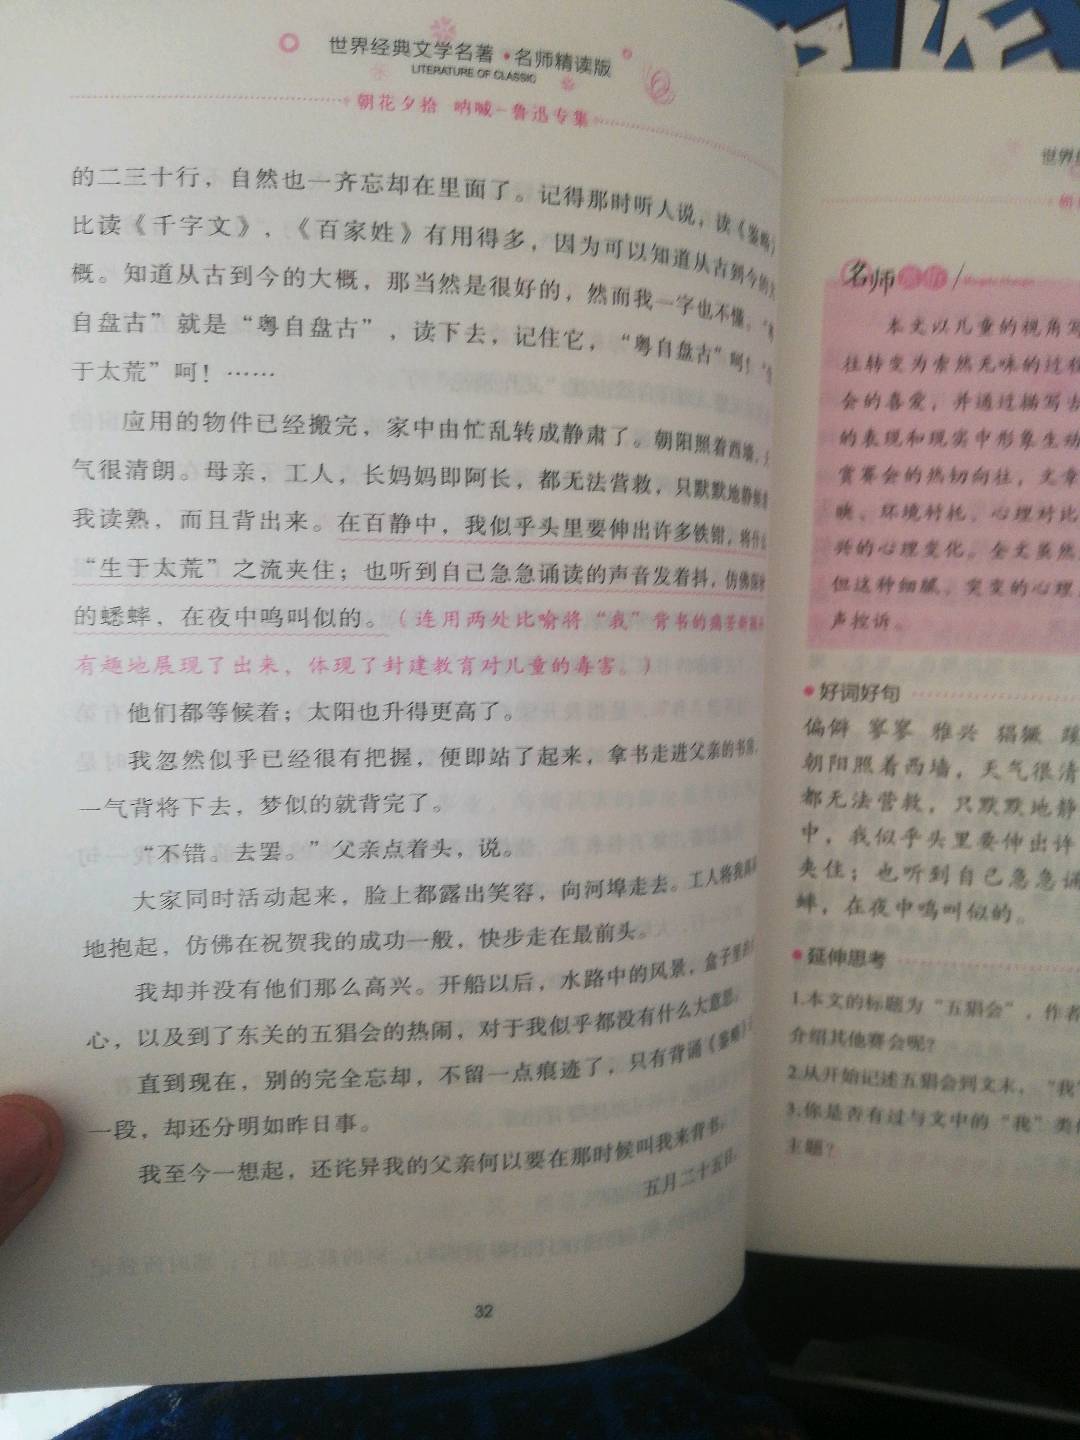 世界经典文学名著·名师精读版
LITERATURE OF CLASSIC
朝花夕拾 呐喊-鲁迅专集
的二三十行，自然也一齐忘却在里面了。记得那时听人说，读《鉴略》
比读《千字文》，《百家姓》有用得多，因为可以知道从古到今的大
概。知道从古到今的大概，那当然是很好的，然而我一字也不懂。“粤
自盘古”就是“粤自盘古”，读下去，记住它，“粤自盘古”呵！“生
于太荒”呵！……
应用的物件已经搬完，家中由忙乱转成静肃了。朝阳照着西墙，天
气很清朗。母亲，工人，长妈妈即阿长，都无法营救，只默默地静候着
我读熟，而且背出来。在百静中，我似乎头里要伸出许多铁钳，将什么
“生于太荒”之流夹住；也听到自己急急诵读的声音发着抖，仿佛深秋
的蟋蟀，在夜中鸣叫似的。（连用两处比喻将“我”背书的痛苦
有趣地展现了出来，体现了封建教育对儿童的毒害。）
他们都等候着；太阳也升得更高了。
我忽然似乎已经很有把握，便即站了起来，拿书走进父亲的书房，
一气背将下去，梦似的就背完了。
“不错。去罢。”父亲点着头，说。
大家同时活动起来，脸上都露出笑容，向河埠走去。工人将我高高
地抱起，仿佛在祝贺我的成功一般，快步走在最前头。
我却并没有他们那么高兴。开船以后，水路中的风景，盒子里的点
心，以及到了东关的五猖会的热闹，对于我似乎都没有什么大意思。
直到现在，别的完全忘却，不留一点痕迹了，只有背诵《鉴略》这
一段，却还分明如昨日事。
我至今一想起，还诧异我的父亲何以要在那时候叫我来背书。
五月二十五日。
32
世界
名师
本文以儿童的视角写
往转变为索然无味的过程
会的喜爱，并通过描写古
的表现和现实中形象生动
赏赛会的热切向往，文章
映、环境衬托、心理对比
兴的心理变化。全文虽然
但这种细腻、突变的心理
声控诉。
好词好句
偏僻 寥寥 雅兴 猖獗
朝阳照着西墙，天气很清
都无法营救，只默默地静
中，我似乎头里要伸出许
夹住；也听到自己急急诵
蟀，在夜中鸣叫似的。
延伸思考
1.本文的标题为“五猖会”，作者
介绍其他赛会呢？
2.从开始记述五猖会到文末，“我”
3.你是否有过与文中的“我”类似
主题？